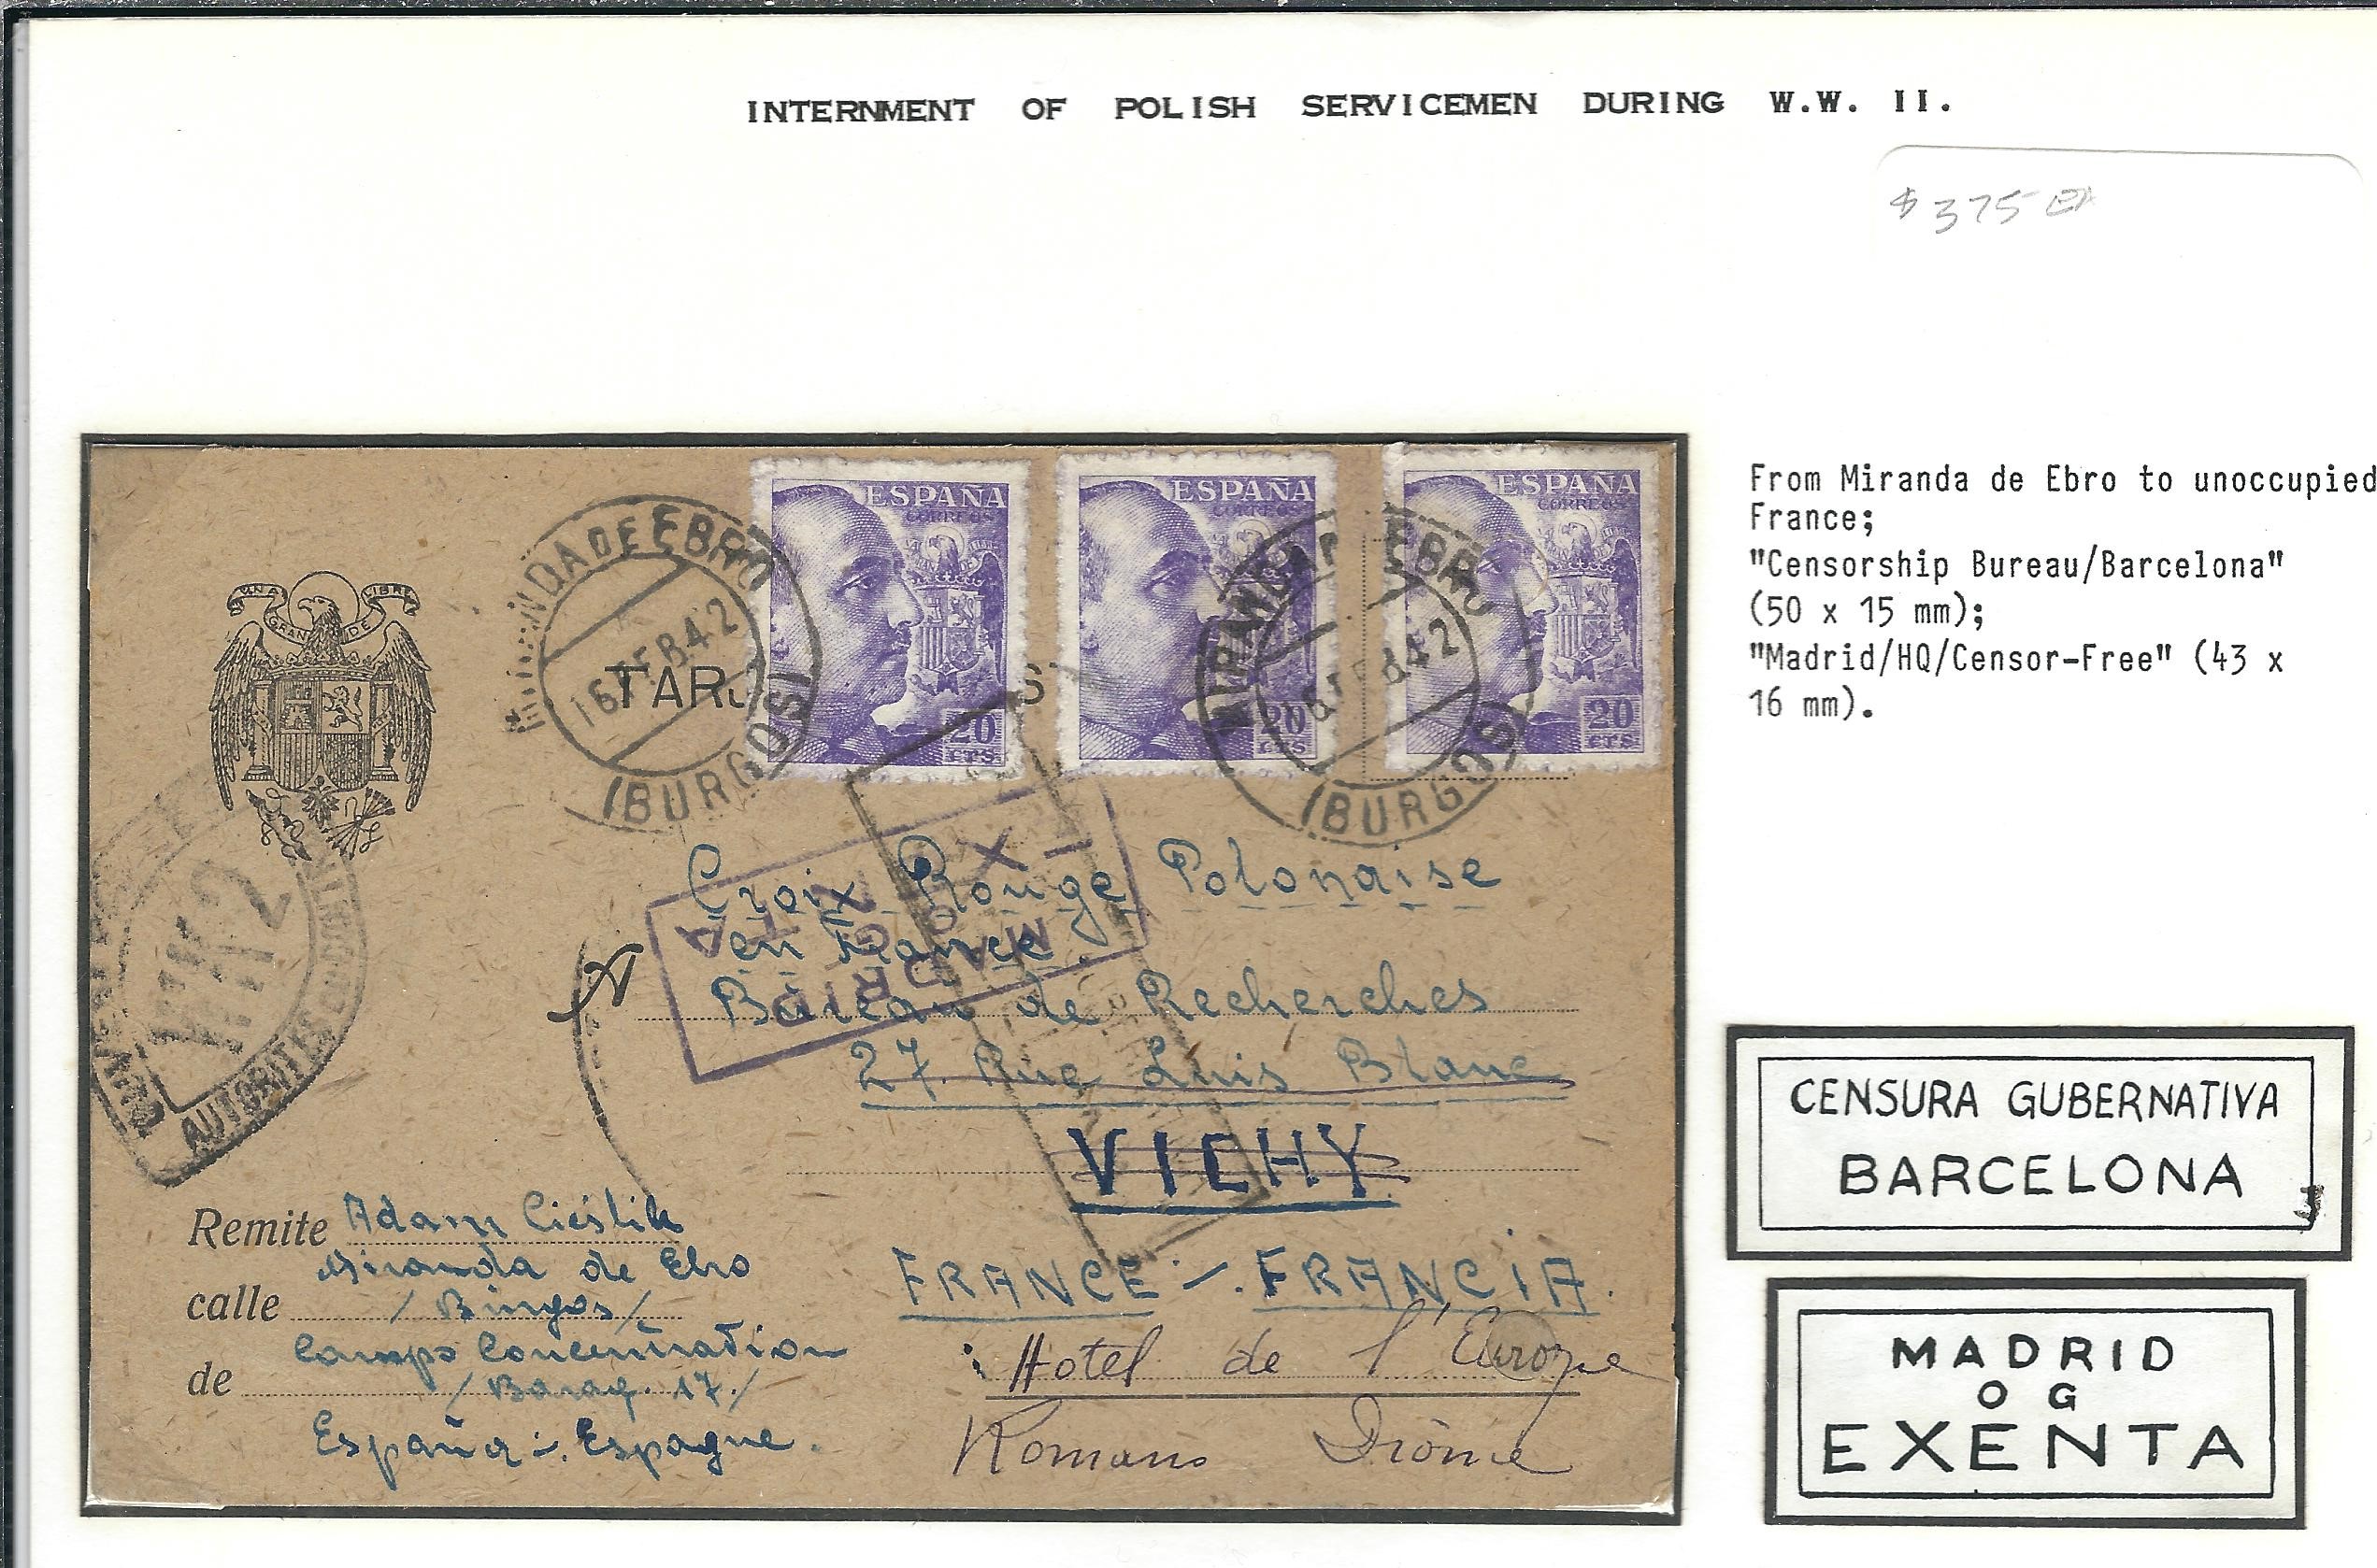 INTERNMENT OF POLISH SERVICEMEN DURING W.W. II.
$ 375 EA
From Miranda de Ebro to unoccupied
France;
"Censorship Bureau/Barcelona"
(50 x 15 mm);
"Madrid/HQ/Censor-Free" (43 x
16 mm).
UNA GRANDE LIBRE
MIRANDA DE EBRO
16 FEB 42
(BURGOS)
ESPAÑA
CORREOS
20
CTS
ESPAÑA
CORREOS
20
CTS
ESPAÑA
CORREOS
20
CTS
MIRANDA DE EBRO
16 FEB 42
(BURGOS)
TARJ
S
AUTORITES
MADRID
Croix Rouge Polonaise
en France.
Bureau de Recherches
27. Rue Luis Blanc
VICHY
FRANCE -. FRANCIA.
Hotel de l'Europe
Romans Drôme
Remite Adam Cieślik
Miranda de Ebro
calle /Burgos/
Campo Concentration
de /Baraq. 17./
España -. Espagne.
CENSURA GUBERNATIVA
BARCELONA
MADRID
O G
EXENTA